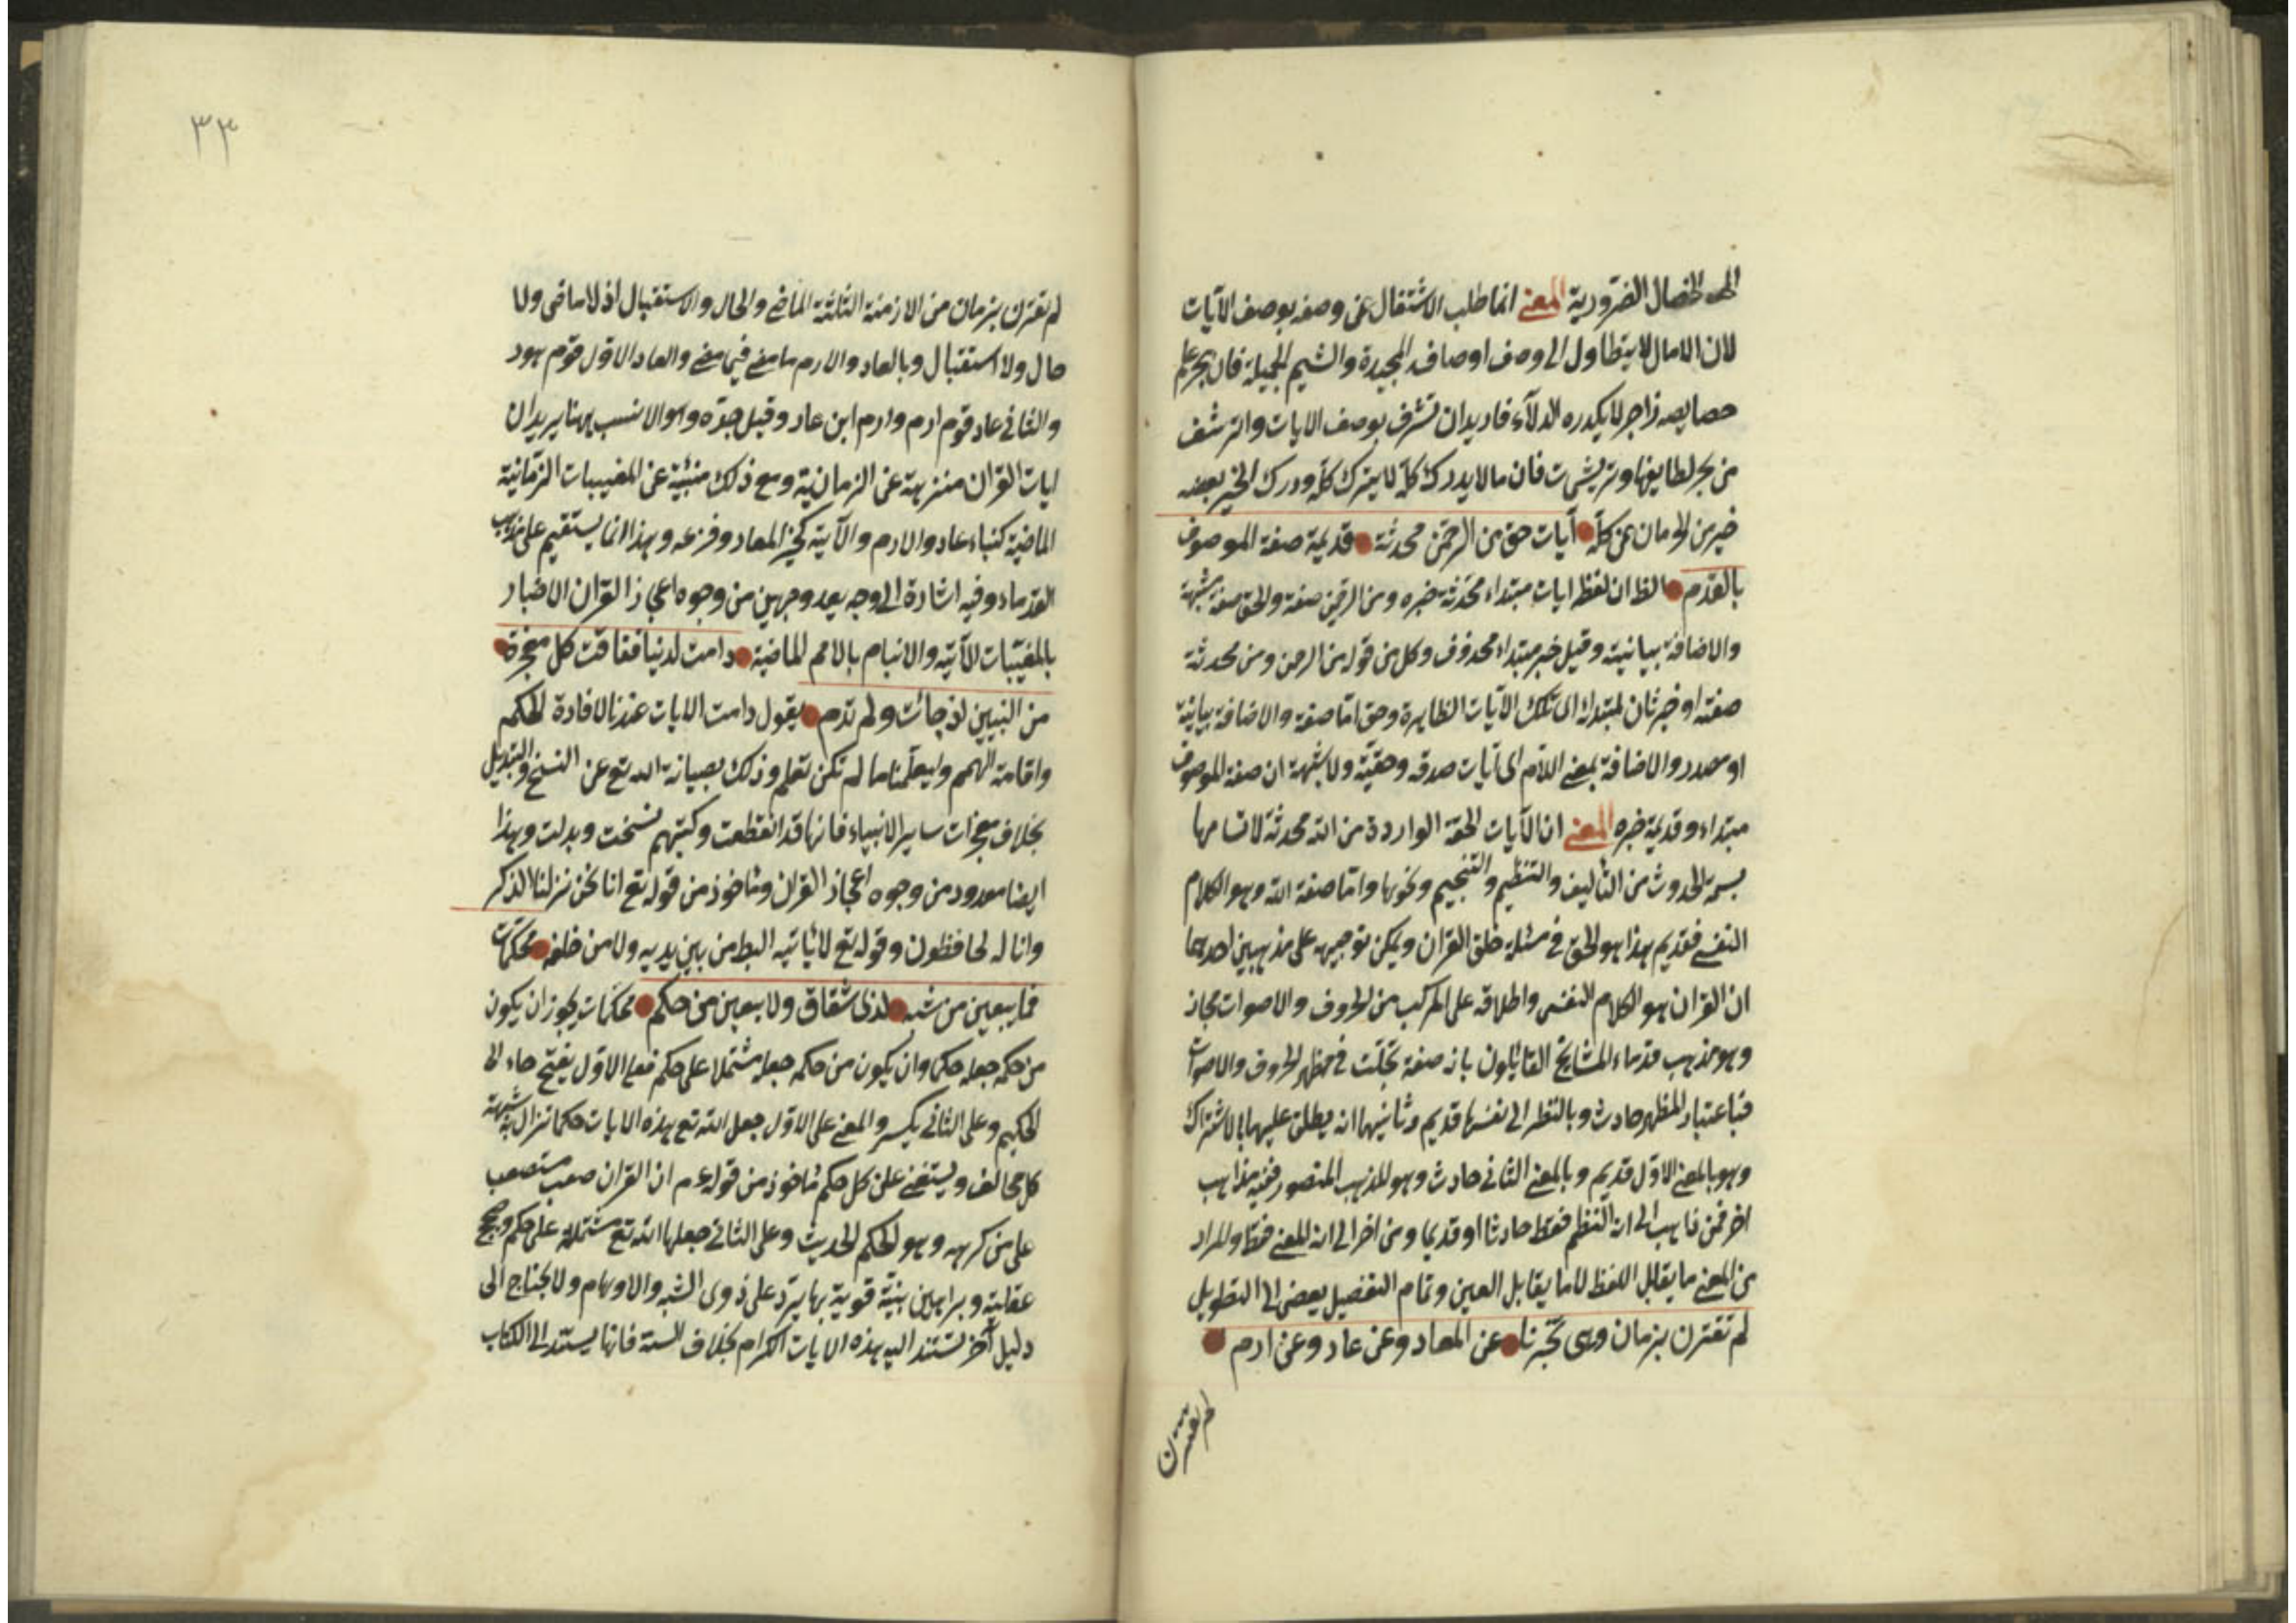 الى الخصال الضرورية المعنى انما طلب الاشتغال عن وصفه بوصف الآيات
لان الامال لا يتطاول الى وصف اوصافه المجيدة والشيم الجميلة فان بحر علم
خصايصه زاجر لا يكدره الدلآء فاريد ان تشرف بوصف الايات والترشف
من بحر لطايفها وتريشى ت فان ما لا يدرك كله لا يترك كله ودرك الخير بعضه
خير من الحرمان عن كله آيات حق من الرحمن محدثة قديمة صفة الموصوف
بالقدم الظ ان لفظ ايات مبتداء محدثة خبره ومن الرحمن صفة والحق صفة مشبهة
والاضافة بيانية وقيل خبر مبتداء محذوف وكل من قوله من الرحمن ومن محدثة
صفته او خبر ثان لمبتداء اى تلك الآيات الظاهرة وحق اما صفة والاضافة بيانية
او مصدر والاضافة بمعنى اللام اى آيات صدقه وحقيته ولا شبهة ان صفة الموصوف
مبتداء وقديمة خبره المعنى ان الآيات الحقة الواردة من الله محدثة لاتسامها
بسمة الحدوث من التأليف والتنظيم والتنجيم ونحوها واما صفة الله وهو الكلام
النفسى فقديم هذا هو الحق فى مسئلة خلق القران ويمكن توجيهه على مذهبين احدهما
ان القران هو الكلام النفسى واطلاقه على المركب من الحروف والاصوات مجاز
وهو مذهب قدماء المشايخ القائلون بانه صفة تجلت فى مظهر الحروف والاصوات
فباعتبار المظهر حادث وبالنظر الى نفسها قديم وثانيهما انه يطلق عليهما بالاشتراك
وهو بالمعنى الاول قديم وبالمعنى الثانى حادث وهو المذهب المنصور ففيه مذاهب
اخر فمن ذاهب الى انه النظم فقط حادثا او قديما ومن اخر الى انه المعنى فقط والمراد
من المعنى ما يقابل اللفظ لا ما يقابل العين وتمام التفصيل يفضى الى التطويل
لم تقترن بزمان وهى تخبرنا عن المعاد وعن عاد وعن ارم
لم تقترن
٣٣
لم تقترن بزمان من الازمنة الثلثة الماضى والحال والاستقبال اذ لا ماضى ولا
حال ولا استقبال وبالعاد والارم ما مضى فيما مضى والعاد الاول قوم هود
والثانى عاد قوم ارم وارم ابن عاد وقيل جده وهو الانسب هنا يريد ان
ايات القران منزهة عن الزمانية ومع ذلك منبئة عن المغيبات الزمانية
الماضية كنباء عاد والارم والآتية كخبر المعاد وفزعه وهذا انما يستقيم على مذهب
القدماء وفيه اشارة الى وجه يعد وجهين من وجوه اعجاز القران الاخبار
بالمغيبات الآتية والانباء بالامم الماضية دامت لدينا ففاقت كل معجزة
من النبيين اذ جائت ولم تدم يقول دامت الايات عندنا لافادة الحكم
واقامة الهمم وليعلمنا ما لم نكن نعلم وذلك بصيانة الله تع عن النسخ والتبديل
بخلاف معجزات ساير الانبياء فانها قد انقطعت وكتبهم نسخت وبدلت وهذا
ايضا معدود من وجوه اعجاز القران وماخوذ من قوله تع انا نحن نزلنا الذكر
وانا له لحافظون وقوله تع لا ياتيه البط من بين يديه ولا من خلفه محكمات
فما يبغين من شبه لذى شقاق ولا يبغين من حكم محكمات يجوز ان يكون
من حكمه جعله حكما وان يكون من حكمه جعله مشتملا على حكم فعلى الاول بفتح حاء الى
الحكيم وعلى الثانى بكسر والمعنى على الاول جعل الله تع هذه الايات حكما تزال به شبهة
كل مخالف ويستغنى على كل حكم ماخوذ من قوله م ان القران صعب مستصعب
على من كرهه وهو الحكم الحديث وعلى الثانى جعلها الله تع مشتملة على حكم وحجج
عقلية وبراهين بنية قوية بها يرد على ذوى الشبه والاوهام ولا يحتاج الى
دليل آخر تستند اليه هذه الايات الكرام بخلاف السنة فانها يستند الى الكتاب